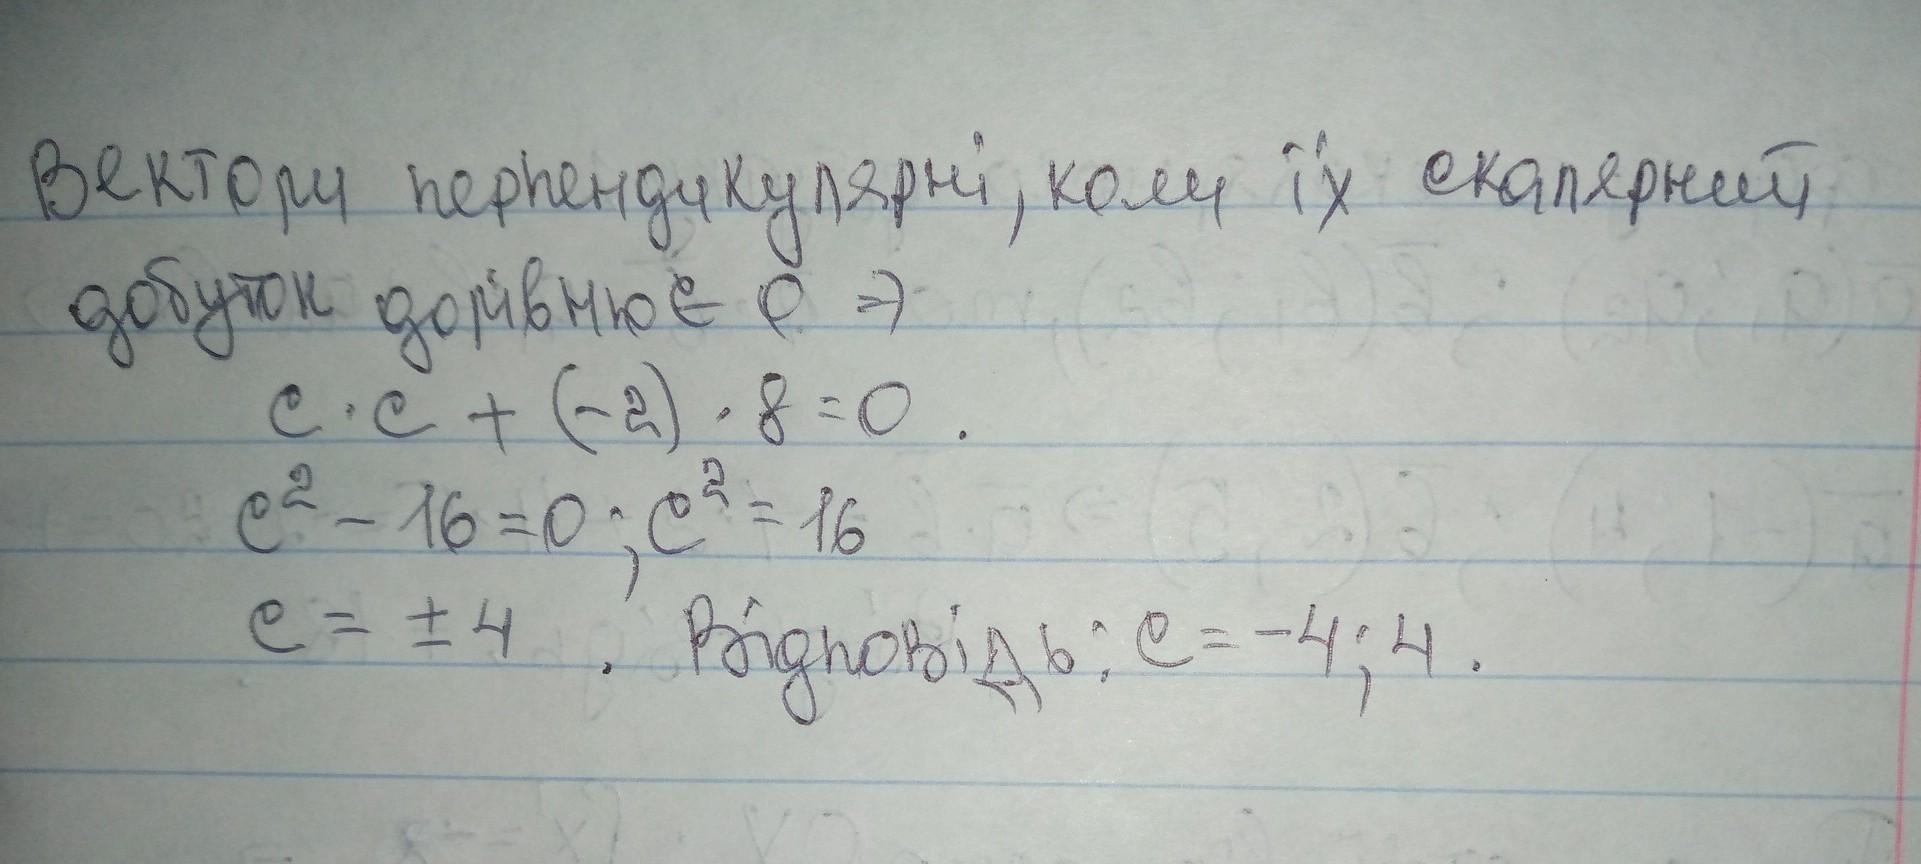 Вектори перпендикулярні, коли їх скалярний
добуток дорівнює 0 ⇒
c · c + (-2) · 8 = 0 .
c² - 16 = 0 ; c² = 16
c = ± 4 . Відповідь: c = -4; 4 .